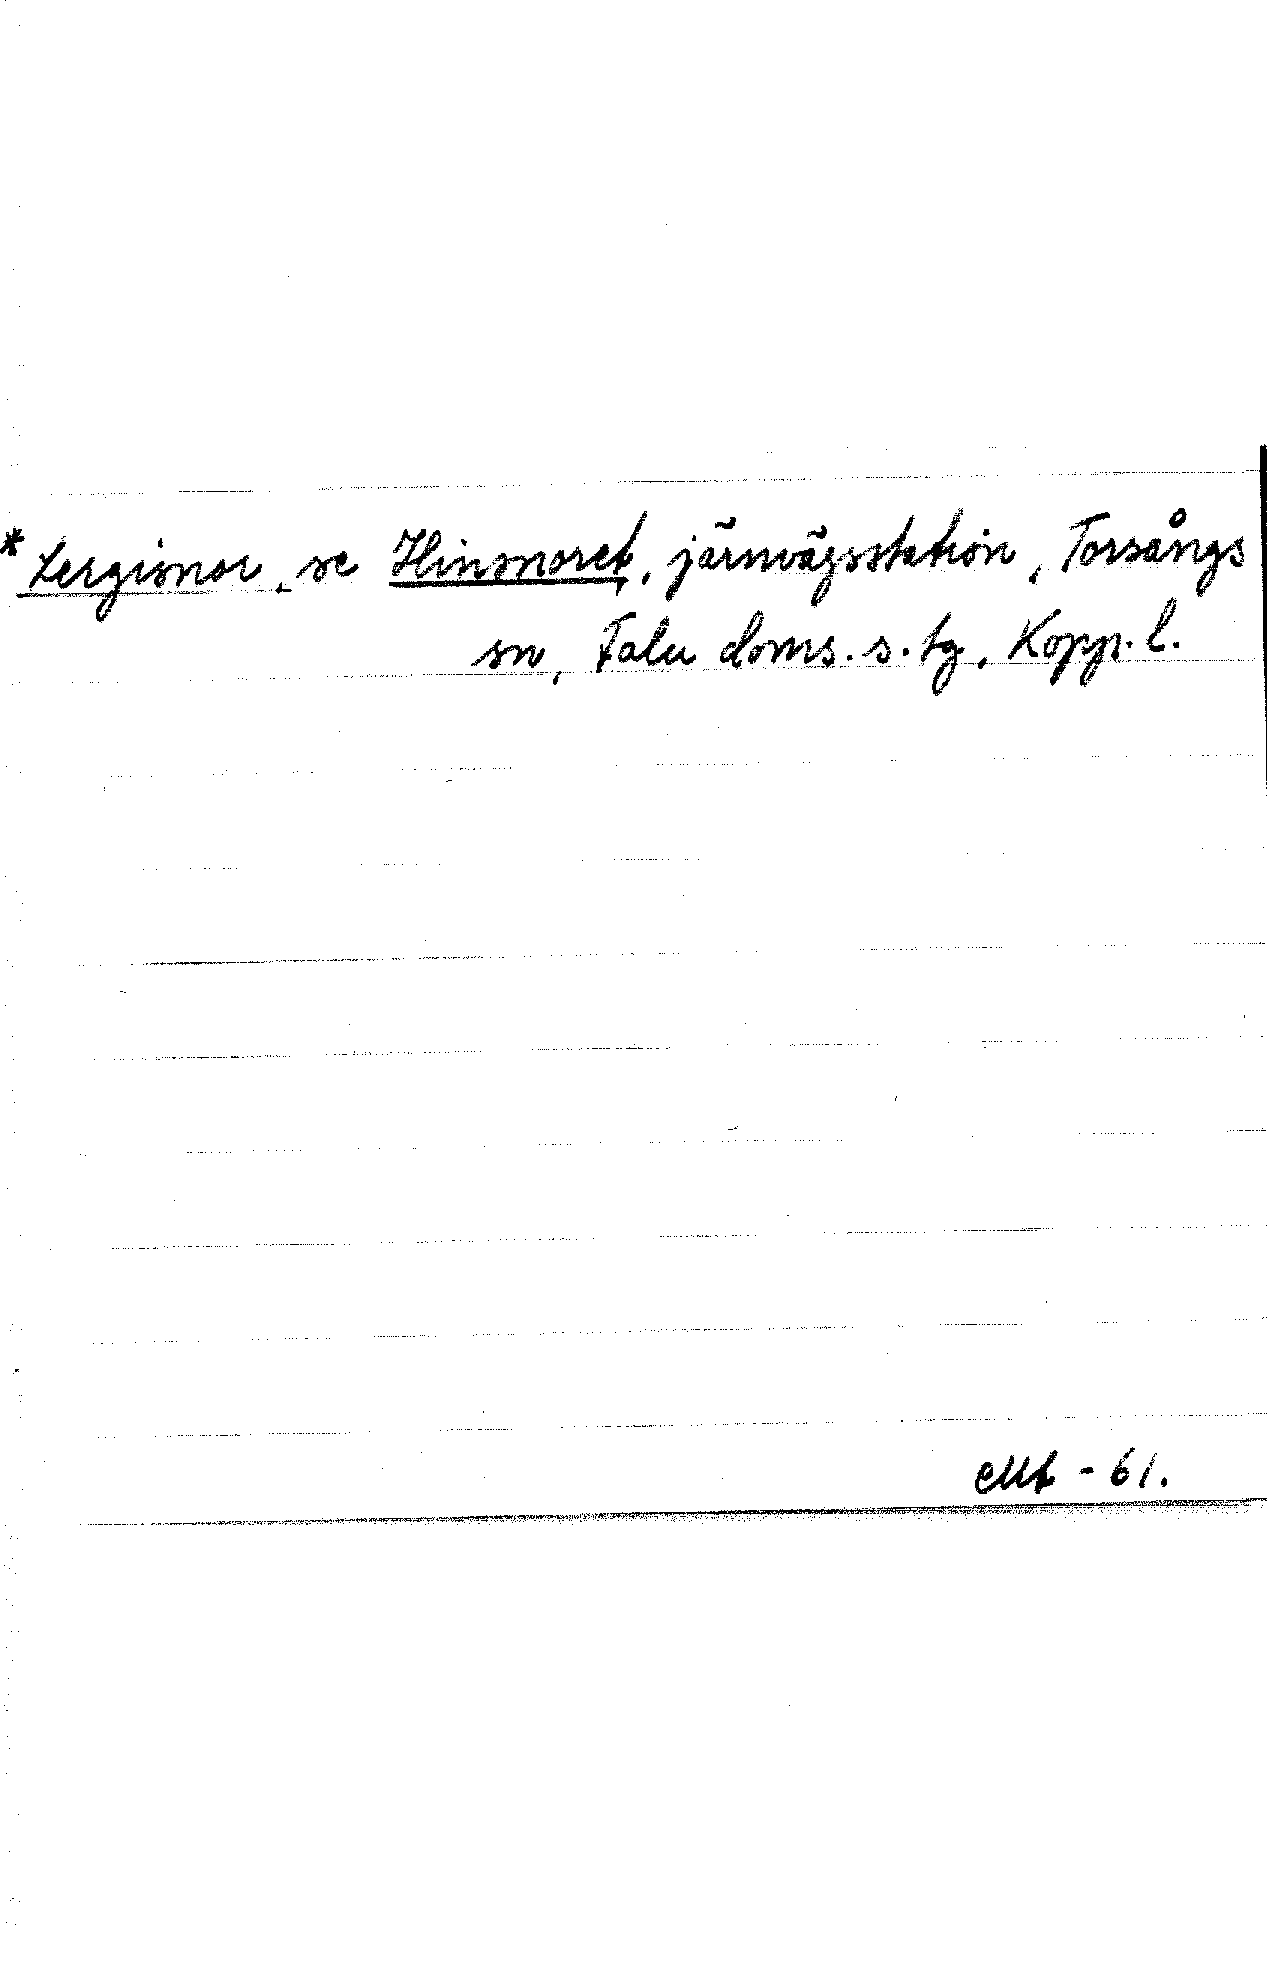 *Lergisnor, se Hinsnoret, järnvägsstation, Torsångs
sn, Falu doms.s.tg, Kopp.l.
Mt -61.